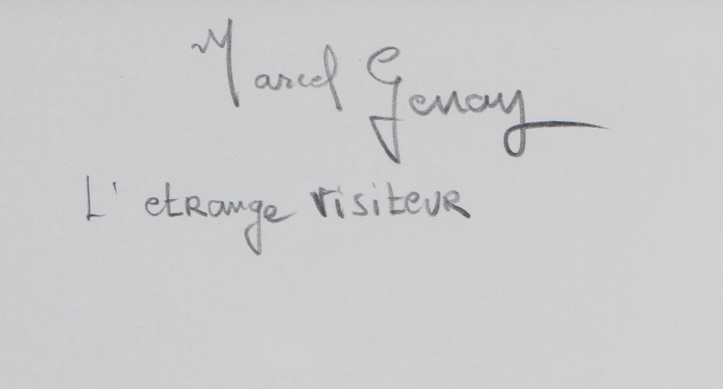 Marcel Genay
L'etRange visiteuR